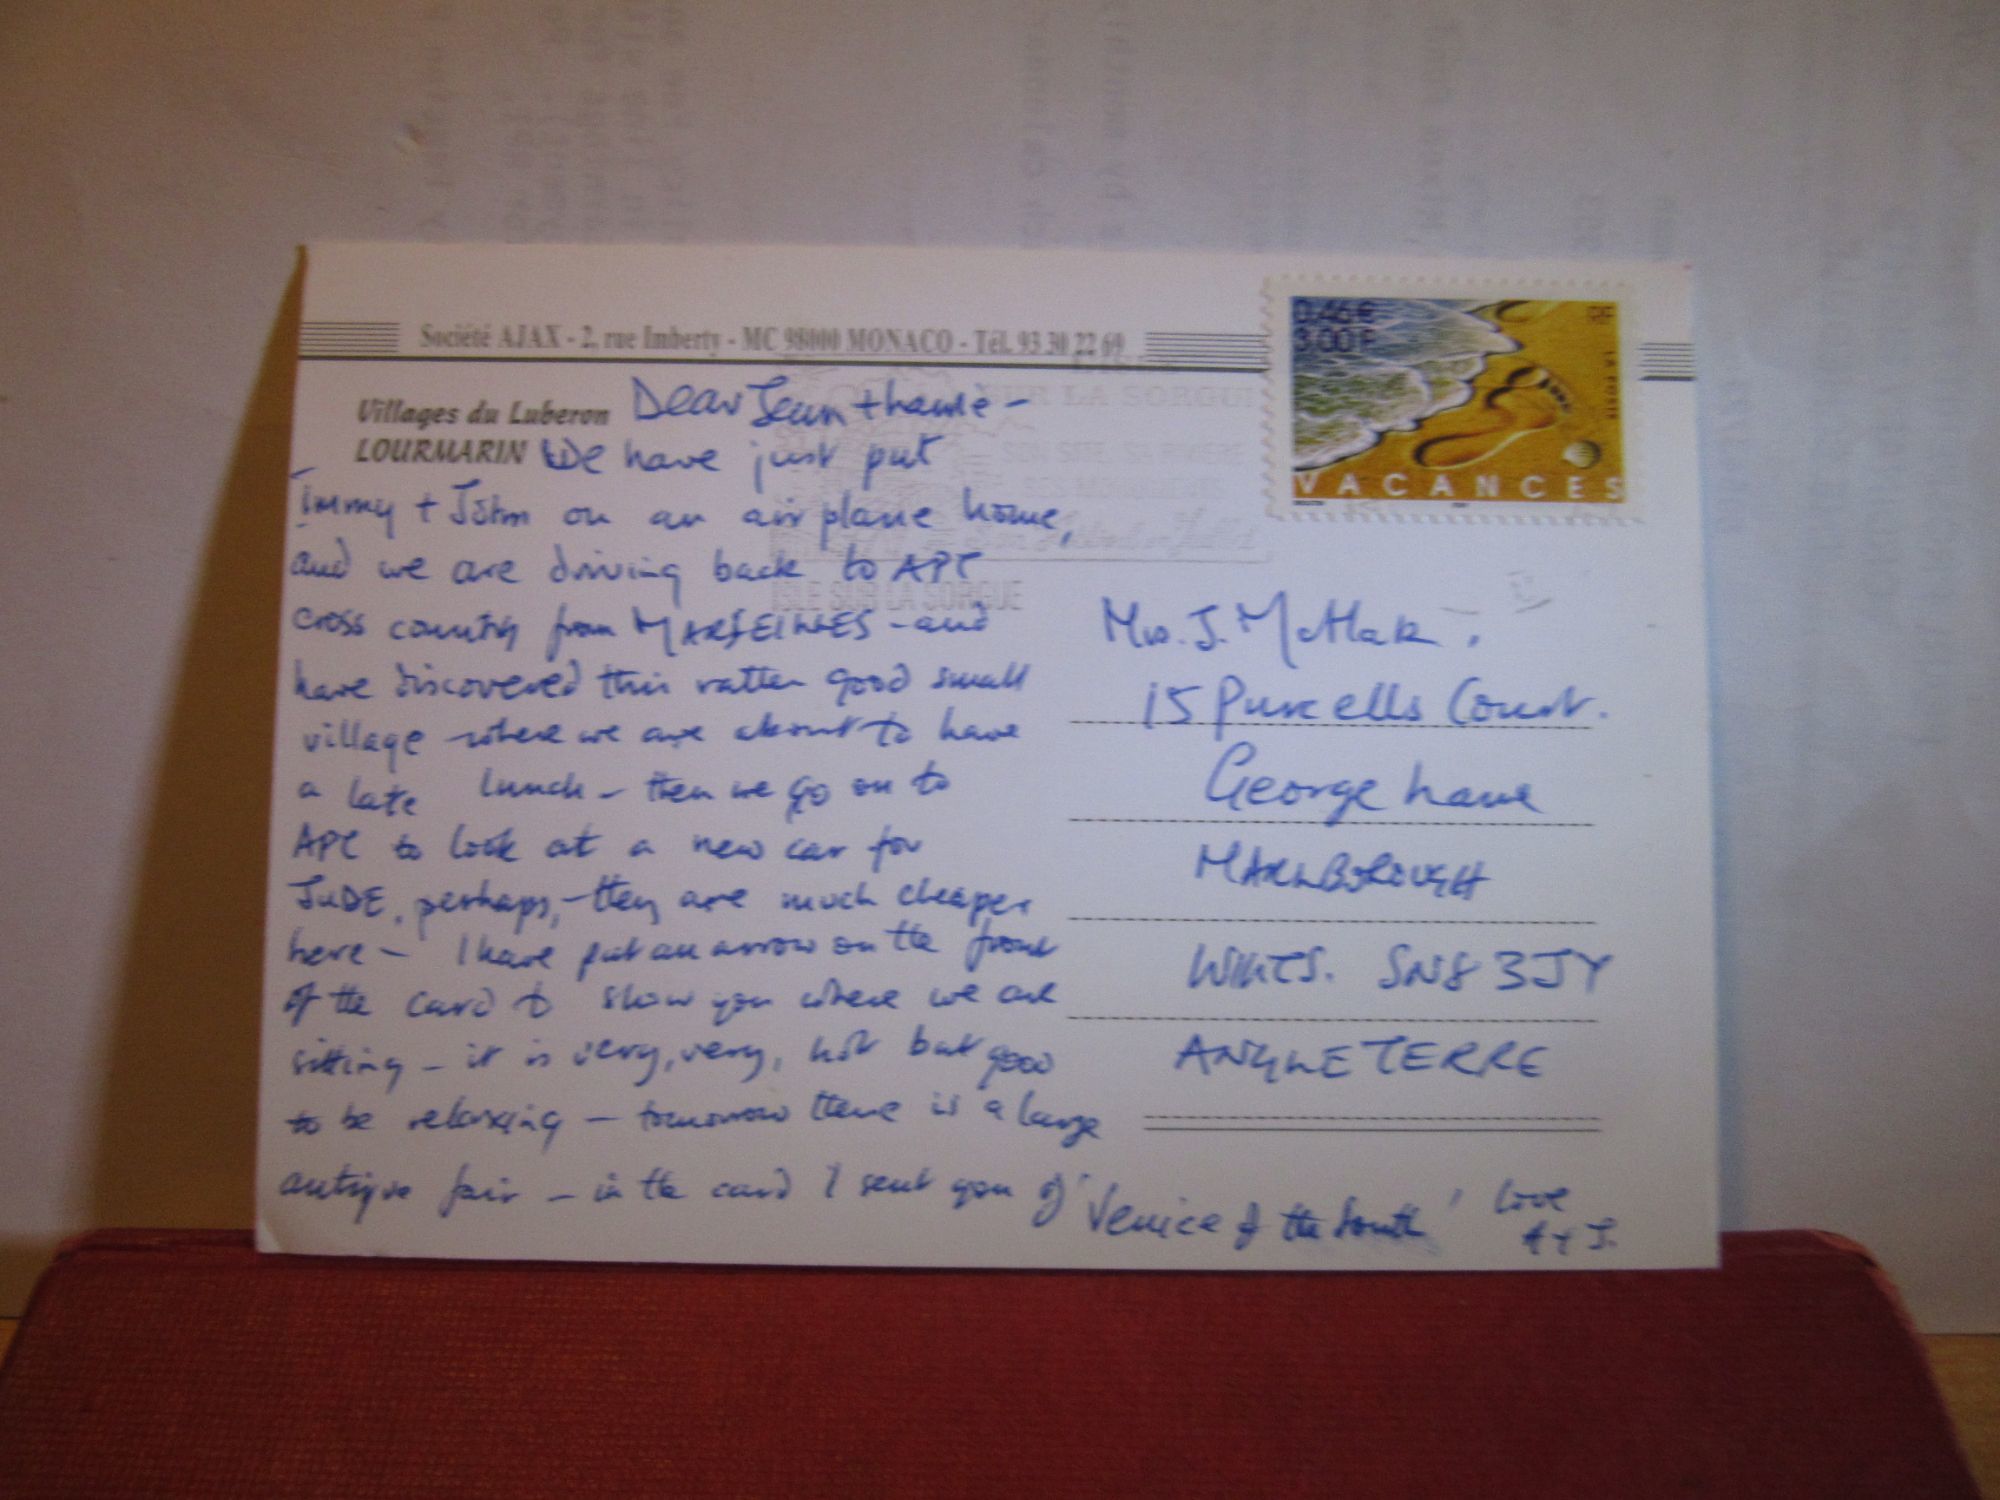 Société AJAX - 2, rue Imberty - MC 98000 MONACO - Tél. 93 30 22 69
0.46€
3.00F
RF
LA POSTE
VACANCES
SUR LA SORGUE
ISLE SUR LA SORGUE
Villages du Luberon
LOURMARIN
Dear Jean +
We have just put
Immy + John on an airplane home,
and we are driving back to APT
cross country from MARSEILLES - and
have discovered this rather good small
village where we are about to have
a late lunch - then we go on to
APT to look at a new car for
JUDE, perhaps, - they are much cheaper
here - I have put an arrow on the front
of the card to show you where we are
sitting - it is very, very, hot but good
to be relaxing - tomorrow there is a large
antique fair - in the card I sent you of 'Venice of the South' Love
A + J.
Mrs. J.
15 Purcells Court.
George Lane
MARLBOROUGH
WILTS. SN8 3JY
ANGLETERRE